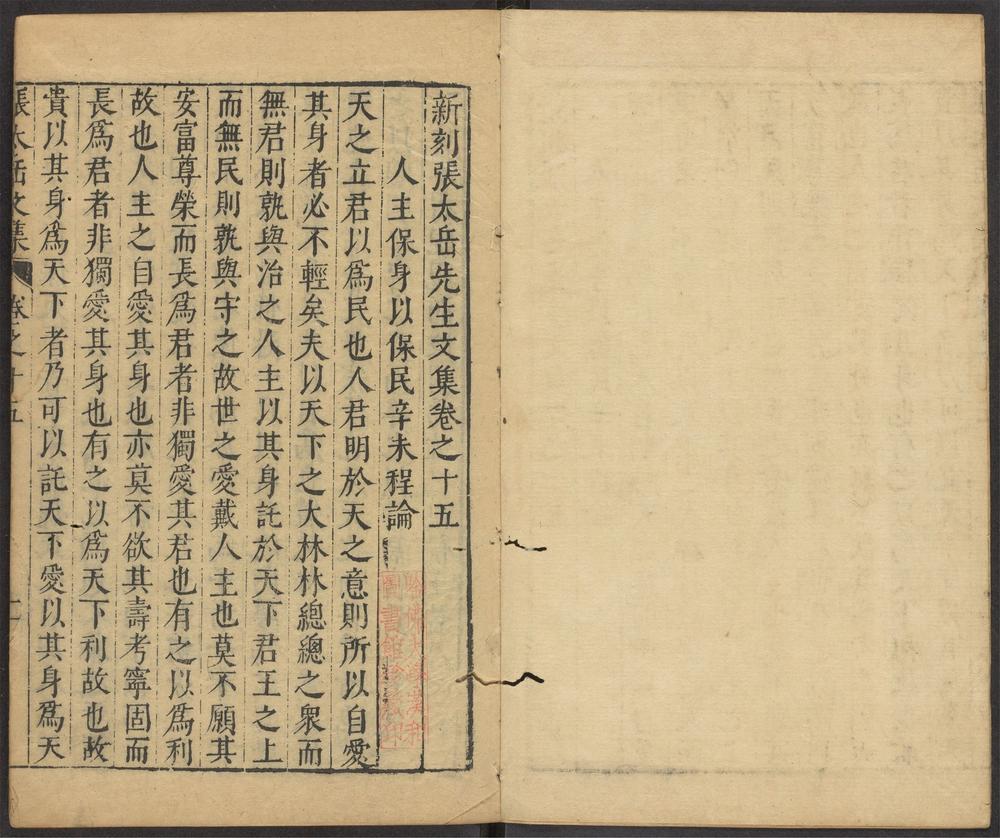 新刻張太岳先生文集卷之十五
人主保身以保民辛未程論
天之立君以爲民也人君明於天之意則所以自愛
其身者必不輕矣夫以天下之大林林總總之衆而
無君則孰與治之人主以其身託於天下君王之上
而無民則孰與守之故世之愛戴人主也莫不願其
安富尊榮而長爲君者非獨愛其君也有之以爲利
故也人主之自愛其身也亦莫不欲其壽考寧固而
長爲君者非獨愛其身也有之以爲天下利故也故
貴以其身爲天下者乃可以託天下愛以其身爲天
張太岳文集
卷之十五
一
哈佛大學漢和
圖書館珍藏印